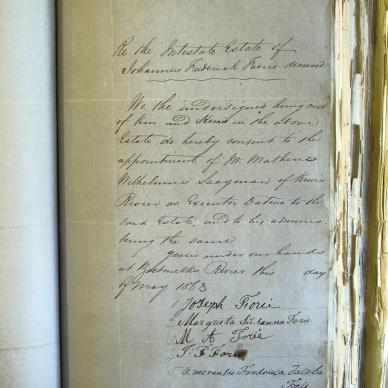 Re the Intestate Estate of
Johannes Frederick Forie deceased
We the undersigned being next
of Kin and Heirs in the above
Estate do hereby consent to the
appointment of Mr Mathinus
Wilhelmus Saagman of
Rivier as Executor Dative to the
said Estate, and to his adminis-
tering the same
given under our hands
at Rivier this day
of May 1863
Joseph Forie
Margreta Johanna Forie
M A Forie
J F Forie
Amerentia Frederica Jacoba
Forie